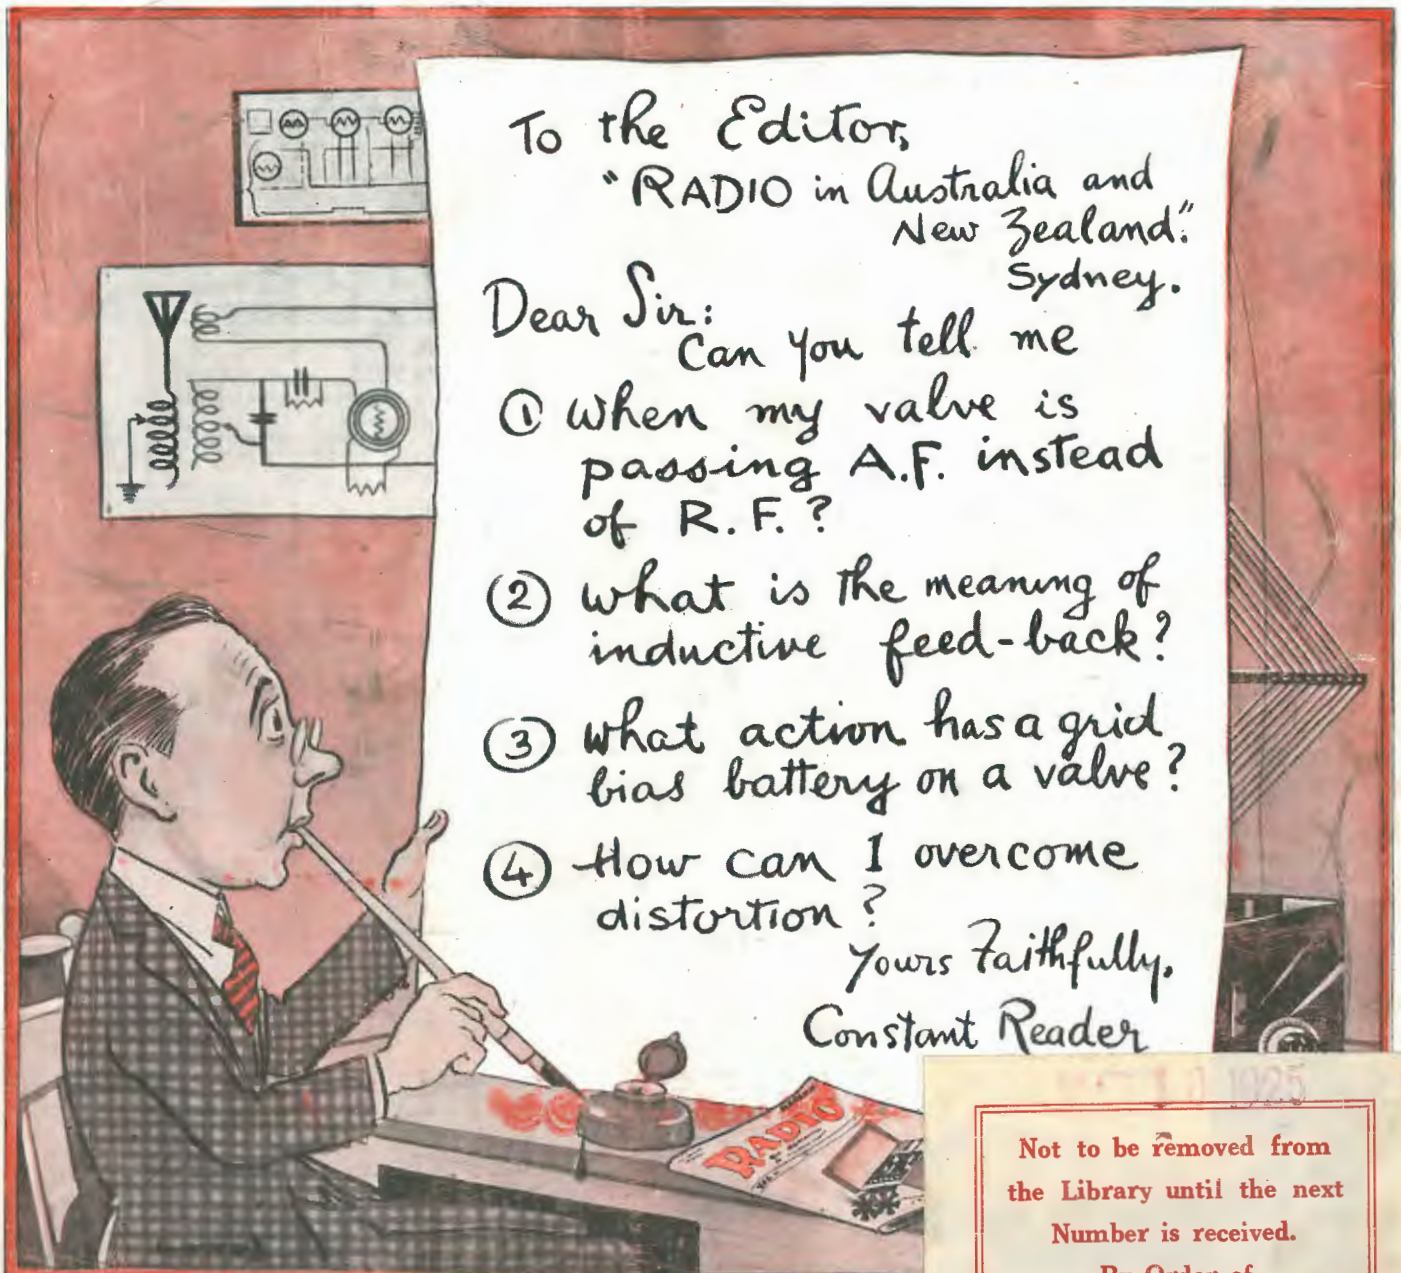 To the Editor,
"RADIO in Australia and
New Zealand."
Sydney.
Dear Sir:
Can you tell me
① When my valve is
passing A.F. instead
of R.F.?
② What is the meaning of
inductive feed-back?
③ What action has a grid
bias battery on a valve?
④ How can I overcome
distortion?
Yours Faithfully,
Constant Reader
RADIO
1925
Not to be removed from
the Library until the next
Number is received.
By Order of